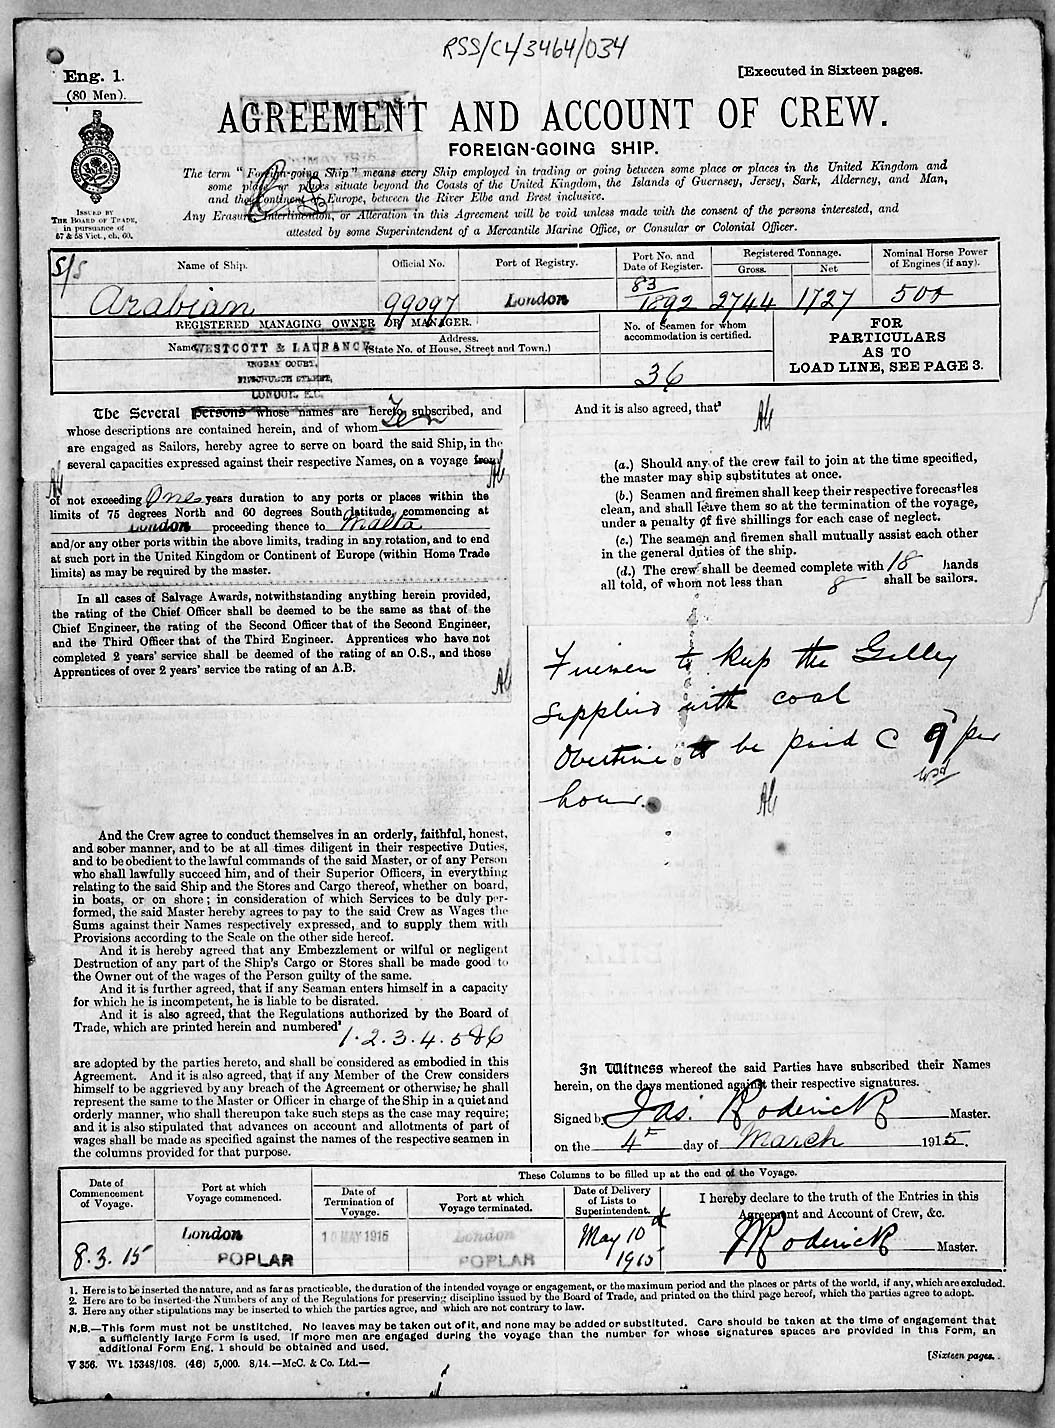 RSS/CL/3464/034
Eng. 1.
(80 Men).
[Executed in Sixteen pages.
AGREEMENT AND ACCOUNT OF CREW.
FOREIGN-GOING SHIP.
MAY 1915
The term "Foreign-going Ship" means every Ship employed in trading or going between some place or places in the United Kingdom and
some place or places situate beyond the Coasts of the United Kingdom, the Islands of Guernsey, Jersey, Sark, Alderney, and Man,
and the Continent of Europe, between the River Elbe and Brest inclusive.
Any Erasure, Interlineation, or Alteration in this Agreement will be void unless made with the consent of the persons interested, and
attested by some Superintendent of a Mercantile Marine Office, or Consular or Colonial Officer.
ISSUED BY
THE BOARD OF TRADE,
in pursuance of
57 & 58 Vict., ch. 60.
Name of Ship.
Official No.
Port of Registry.
Port No. and
Date of Register.
Registered Tonnage.
Gross.
Net
Nominal Horse Power
of Engines (if any).
S/S
Arabian
99097
London
83/1892
2744
1727
500
REGISTERED MANAGING OWNER OR MANAGER.
Name
Address.
(State No. of House, Street and Town.)
WESTCOTT & LAURANCE
FENCHURCH STREET,
LONDON, E.C.
No. of Seamen for whom
accommodation is certified.
36
FOR
PARTICULARS
AS TO
LOAD LINE, SEE PAGE 3.
The Several Persons whose names are hereto subscribed, and
whose descriptions are contained herein, and of whom Ten
are engaged as Sailors, hereby agree to serve on board the said Ship, in the
several capacities expressed against their respective Names, on a voyage from
of not exceeding One years duration to any ports or places within the
limits of 75 degrees North and 60 degrees South latitude, commencing at
London proceeding thence to Malta
and/or any other ports within the above limits, trading in any rotation, and to end
at such port in the United Kingdom or Continent of Europe (within Home Trade
limits) as may be required by the master.
In all cases of Salvage Awards, notwithstanding anything herein provided,
the rating of the Chief Officer shall be deemed to be the same as that of the
Chief Engineer, the rating of the Second Officer that of the Second Engineer,
and the Third Officer that of the Third Engineer. Apprentices who have not
completed 2 years' service shall be deemed of the rating of an O.S., and those
Apprentices of over 2 years' service the rating of an A.B.
And the Crew agree to conduct themselves in an orderly, faithful, honest,
and sober manner, and to be at all times diligent in their respective Duties,
and to be obedient to the lawful commands of the said Master, or of any Person
who shall lawfully succeed him, and of their Superior Officers, in everything
relating to the said Ship and the Stores and Cargo thereof, whether on board,
in boats, or on shore; in consideration of which Services to be duly per-
formed, the said Master hereby agrees to pay to the said Crew as Wages the
Sums against their Names respectively expressed, and to supply them with
Provisions according to the Scale on the other side hereof.
And it is hereby agreed that any Embezzlement or wilful or negligent
Destruction of any part of the Ship's Cargo or Stores shall be made good to
the Owner out of the wages of the Person guilty of the same.
And it is further agreed, that if any Seaman enters himself in a capacity
for which he is incompetent, he is liable to be disrated.
And it is also agreed, that the Regulations authorized by the Board of
Trade, which are printed herein and numbered² 1.2.3.4.5&6
are adopted by the parties hereto, and shall be considered as embodied in this
Agreement. And it is also agreed, that if any Member of the Crew considers
himself to be aggrieved by any breach of the Agreement or otherwise, he shall
represent the same to the Master or Officer in charge of the Ship in a quiet and
orderly manner, who shall thereupon take such steps as the case may require;
and it is also stipulated that advances on account and allotments of part of
wages shall be made as specified against the names of the respective seamen in
the columns provided for that purpose.
And it is also agreed, that³
(a.) Should any of the crew fail to join at the time specified,
the master may ship substitutes at once.
(b.) Seamen and firemen shall keep their respective forecastles
clean, and shall leave them so at the termination of the voyage,
under a penalty of five shillings for each case of neglect.
(c.) The seamen and firemen shall mutually assist each other
in the general duties of the ship.
(d.) The crew shall be deemed complete with 18 hands
all told, of whom not less than 8 shall be sailors.
Firemen to keep the Galley
supplied with coal
Overtime to be paid @ 9 per
hour.
In Witness whereof the said Parties have subscribed their Names
herein, on the days mentioned against their respective signatures.
Signed by Jas. Roderick Master.
on the 4th day of March 1915.
These Columns to be filled up at the end of the Voyage.
Date of
Commencement
of Voyage.
Port at which
Voyage commenced.
Date of
Termination of
Voyage.
Port at which
Voyage terminated.
Date of Delivery
of Lists to
Superintendent.
I hereby declare to the truth of the Entries in this
Agreement and Account of Crew, &c.
8.3.15
London
POPLAR
10 MAY 1915
London
POPLAR
May 10th
1915
J Roderick Master.
1. Here is to be inserted the nature, and as far as practicable, the duration of the intended voyage or engagement, or the maximum period and the places or parts of the world, if any, which are excluded.
2. Here are to be inserted the Numbers of any of the Regulations for preserving discipline issued by the Board of Trade, and printed on the third page hereof, which the parties agree to adopt.
3. Here any other stipulations may be inserted to which the parties agree, and which are not contrary to law.
N.B.—This form must not be unstitched. No leaves may be taken out of it, and none may be added or substituted. Care should be taken at the time of engagement that
a sufficiently large Form is used. If more men are engaged during the voyage than the number for whose signatures spaces are provided in this Form, an
additional Form Eng. 1 should be obtained and used.
V 356. Wt. 15348/108. (46) 5,000. 8/14.—McC. & Co. Ltd.—
[Sixteen pages.